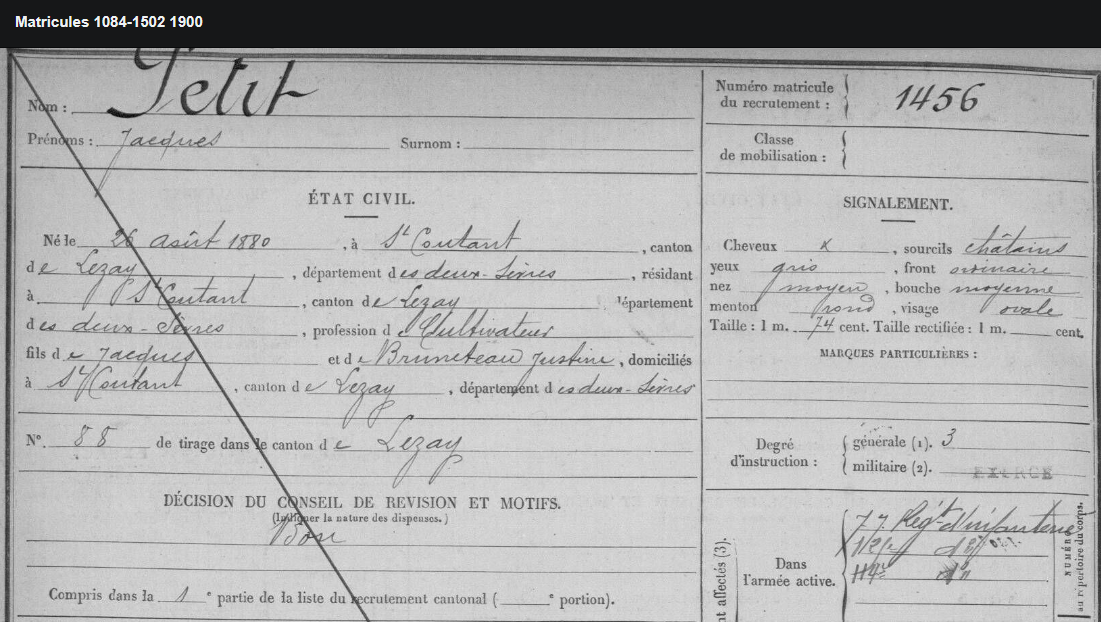 Matricules 1084-1502 1900
Nom : Petit
Prénoms : Jacques Surnom :
ÉTAT CIVIL.
Né le 26 août 1880, à St Coutant, canton
de Lezay, département des deux-Sèvres, résidant
à St Coutant, canton de Lezay département
des deux-Sèvres, profession de Cultivateur
fils de Jacques et de Bruneteau Justine, domiciliés
à St Coutant, canton de Lezay, département des deux-Sèvres
N°. 88 de tirage dans le canton de Lezay
DÉCISION DU CONSEIL DE REVISION ET MOTIFS.
(Indiquer la nature des dispenses.)
Bon
Compris dans la 1e partie de la liste du recrutement cantonal ( e portion).
Numéro matricule
du recrutement : 1456
Classe
de mobilisation :
SIGNALEMENT.
Cheveux x, sourcils châtains
yeux gris, front ordinaire
nez moyen, bouche moyenne
menton rond, visage ovale
Taille : 1 m. 74 cent. Taille rectifiée : 1 m. cent.
MARQUES PARTICULIÈRES :
Degré
d'instruction :
générale (1). 3
militaire (2). EXERCE
Dans
l'armée active.
77 Régt d'infanterie
114e dº
nt affectés (3).
NUMÉRO
au répertoire du corps.